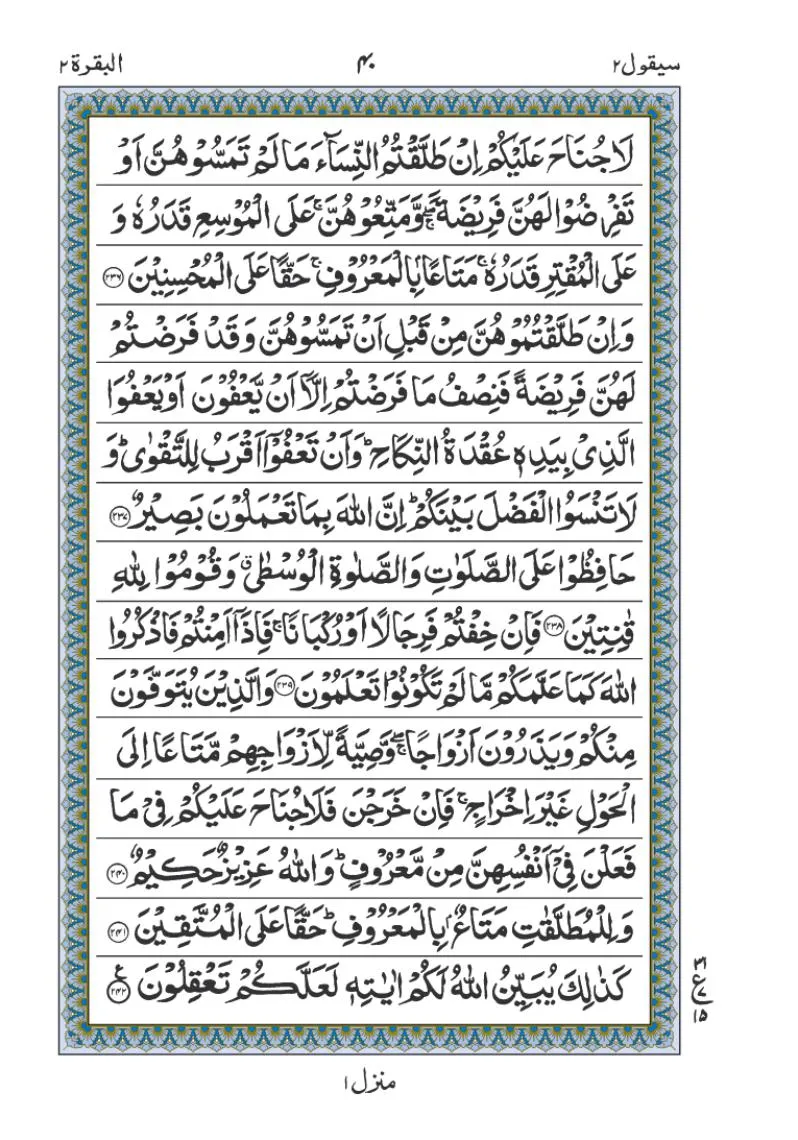 سیقول ۲
۴۰
البقرة ۲
لَا جُنَاحَ عَلَیْكُمْ اِنْ طَلَّقْتُمُ النِّسَآءَ مَا لَمْ تَمَسُّوْهُنَّ اَوْ
تَفْرِضُوْا لَهُنَّ فَرِیْضَةً ۖۚ وَّمَتِّعُوْهُنَّ ۚ عَلَی الْمُوْسِعِ قَدَرُهٗ وَ
عَلَی الْمُقْتِرِ قَدَرُهٗ ۚ مَتَاعًۢا بِالْمَعْرُوْفِ ۚ حَقًّا عَلَی الْمُحْسِنِیْنَ ۲۳۶
وَاِنْ طَلَّقْتُمُوْهُنَّ مِنْ قَبْلِ اَنْ تَمَسُّوْهُنَّ وَقَدْ فَرَضْتُمْ
لَهُنَّ فَرِیْضَةً فَنِصْفُ مَا فَرَضْتُمْ اِلَّاۤ اَنْ یَّعْفُوْنَ اَوْ یَعْفُوَا
الَّذِیْ بِیَدِهٖ عُقْدَةُ النِّكَاحِ ؕ وَاَنْ تَعْفُوْۤا اَقْرَبُ لِلتَّقْوٰی ؕ وَ
لَا تَنْسَوُا الْفَضْلَ بَیْنَكُمْ ؕ اِنَّ اللّٰهَ بِمَا تَعْمَلُوْنَ بَصِیْرٌ ۲۳۷
حَافِظُوْا عَلَی الصَّلَوٰتِ وَالصَّلٰوةِ الْوُسْطٰی ۗ وَقُوْمُوْا لِلّٰهِ
قٰنِتِیْنَ ۲۳۸ فَاِنْ خِفْتُمْ فَرِجَالًا اَوْ رُكْبَانًا ۚ فَاِذَاۤ اَمِنْتُمْ فَاذْكُرُوا
اللّٰهَ كَمَا عَلَّمَكُمْ مَّا لَمْ تَكُوْنُوْا تَعْلَمُوْنَ ۲۳۹ وَالَّذِیْنَ یُتَوَفَّوْنَ
مِنْكُمْ وَیَذَرُوْنَ اَزْوَاجًا ۖۚ وَّصِیَّةً لِّاَزْوَاجِهِمْ مَّتَاعًا اِلَی
الْحَوْلِ غَیْرَ اِخْرَاجٍ ۚ فَاِنْ خَرَجْنَ فَلَا جُنَاحَ عَلَیْكُمْ فِیْ مَا
فَعَلْنَ فِیْۤ اَنْفُسِهِنَّ مِنْ مَّعْرُوْفٍ ؕ وَاللّٰهُ عَزِیْزٌ حَكِیْمٌ ۲۴۰
وَلِلْمُطَلَّقٰتِ مَتَاعٌۢ بِالْمَعْرُوْفِ ؕ حَقًّا عَلَی الْمُتَّقِیْنَ ۲۴۱
كَذٰلِكَ یُبَیِّنُ اللّٰهُ لَكُمْ اٰیٰتِهٖ لَعَلَّكُمْ تَعْقِلُوْنَ ۲۴۲ ع
۳۱
ع ۷
۱۵
منزل ۱